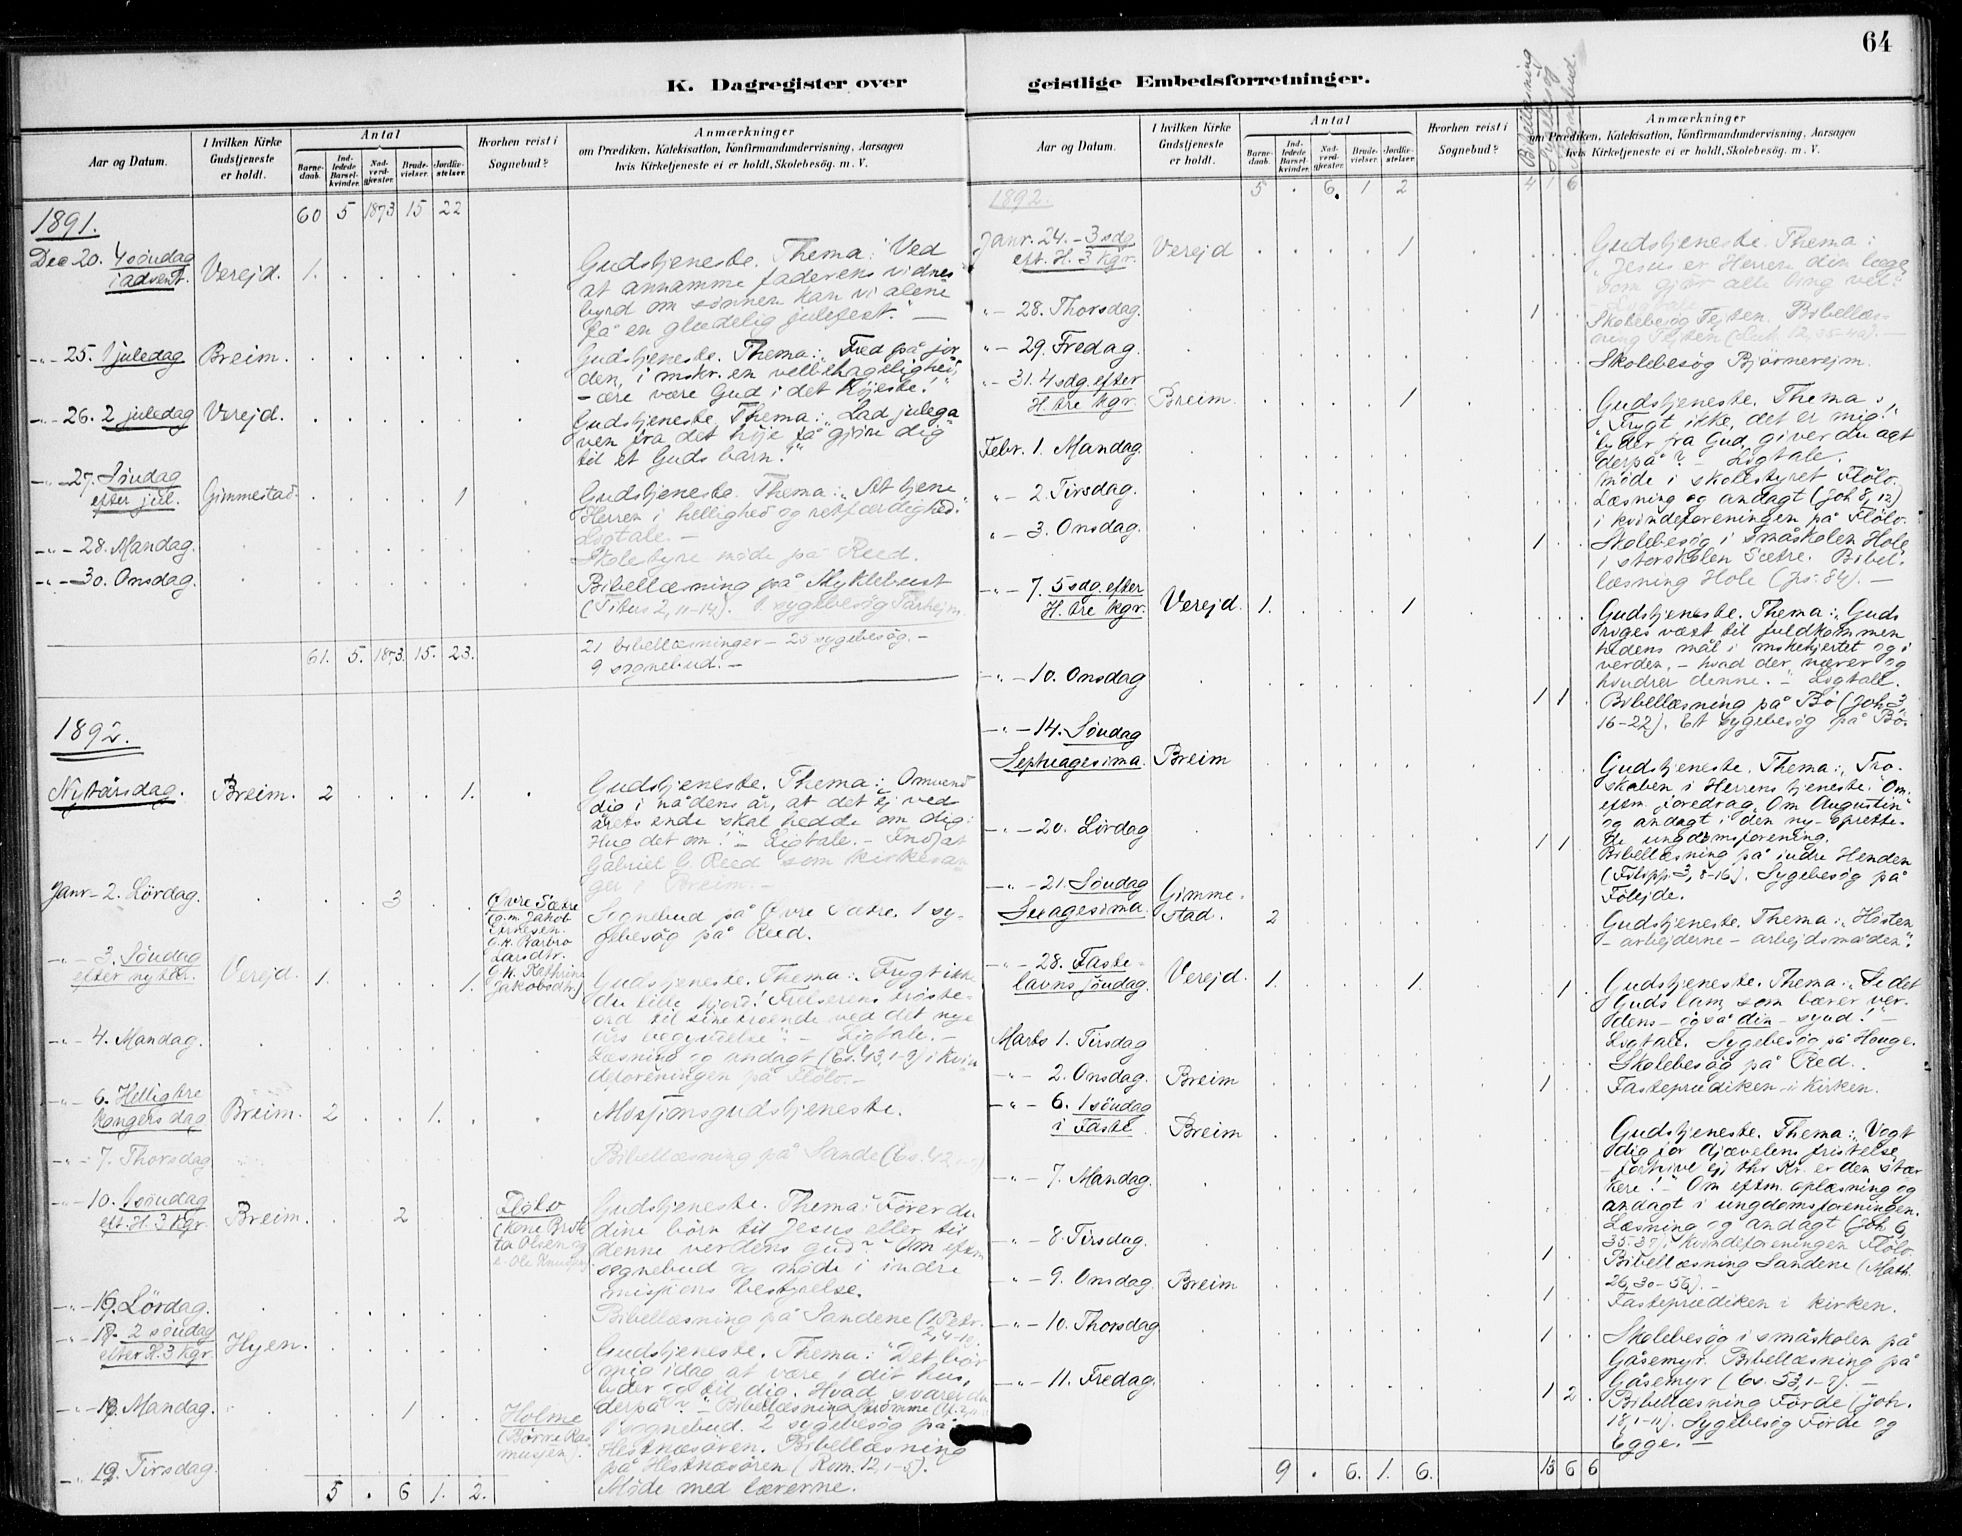 64
K. Dagregister over geistlige Embedsforretninger.
Aar og Datum.
I hvilken Kirke Gudstjeneste er holdt.
Antal
Barnedaab.
Indledede Barselkvinder.
Nadverdgjæster.
Brudevielser.
Jordfæstelser.
Hvorhen reist i Sognebud?
Anmærkninger
om Prædiken, Katekisation, Konfirmandundervisning, Aarsagen
hvis Kirketjeneste ei er holdt, Skolebesög. m. V.
60 5 1873 15 22
1891.
Dec 20. 4 söndag i advent. Verejd. 1.
Gudstjeneste. Thema: Ved
at annamme faderens vidnes
byrd om sönnen kan vi alene
få en glædelig julefest." —
-"- 25. 1 juledag Breim.
Gudstjeneste. Thema: "Fred på jor
den, i mskr. en velbehagelighed,
– ære være Gud i det höjeste!"
-"- 26. 2 juledag Verejd.
Gudstjeneste. Thema: "Lad julega
ven fra det höje få gjöre dig
til et Guds barn!"
-"- 27. Söndag efter jul. Gimmestad. 1
Gudstjeneste. Thema: "At tjene
Herren i hellighed og retfærdighed."
Ligtale. –
-"- 28. Mandag.
Skolestyremöde på Reed.
-"- 30. Onsdag.
Bibellæsning på Myklebust
(Titus 2, 11-14). 1 sygebesög Tarhejm.
61. 5. 1873. 15. 23.
21 bibellæsninger – 25 sygebesög. –
9 sognebud. –
1892.
Nytårsdag. Breim. 2 1.
Gudstjeneste. Thema: "Omvend
dig i nådens år, at det ej ved
årets ende skal hedde om dig:
Hug det om!" – Ligtale. – Indsat
Gabriel G. Reed som kirkesan
ger i Breim. –
Janr – 2. Lördag. 3
Övre Sætre
(g.m. Jakob
g.k. Barbro
Larsdtr.
g.k. Kathrine
Jakobsdtr)
Sognebud på Övre Sætre. 1 sy-
gebesög på Reed.
-"- 3. Söndag efter nytår. Verejd. 1. 1.
Gudstjeneste. Thema: "Frygt ikke
du lille hjord! Frelserens tröste-
ord til sine troende ved det nye
års begyndelse". – Ligtale. –
-"- 4. Mandag.
Læsning og andagt (Es. 43, 1-2) i kvin
deforeningen på Flölo. –
-"- 6. Hellig tre kongers dag Breim. 2 1.
Missionsgudstjeneste.
-"- 7. Thorsdag
Bibellæsning på Sande (Es. 42
-"- 10. 1 söndag eft. H. 3 kgr Breim. 2
Flölo
(Kone Brit
ta Olsen og
Ole Knudsen)
Gudstjeneste. Thema: "Förer du
dine börn til Jesus eller til
denne verdens gud?" Om eftm.
sognebud og möde i indre
missions bestyrelse.
-"- 16. Lördag.
Bibellæsning på Sandene (1 Petr.
2, 4-10.
-"- 17. 2 söndag efter H. 3 kgr. Hyen.
Gudstjeneste. Thema: "Det bör
mig idag at være i dit hus,
lyder og til dig. Hvad svarer du
derpå?" – Bibellæsning
-"- 18. Mandag. 1
Holme
(Börre Ras
mussen).
1 sognebud. 2 sygebesög på
Hestnesören. Bibellæsning
på Hestnesören (Rom. 12, 1-5).
-"- 19. Tirsdag.
Möde med lærerne.
5 . 6 1. 2.
Aar og Datum.
I hvilken Kirke Gudstjeneste er holdt.
Antal
Barnedaab.
Indledede Barselkvinder.
Nadverdgjæster.
Brudevielser.
Jordfæstelser.
Hvorhen reist i Sognebud?
Bibellæsning
Sygebesög
Sognebud.
Anmærkninger
om Prædiken, Katekisation, Konfirmandundervisning, Aarsagen
hvis Kirketjeneste ei er holdt, Skolebesög. m. V.
1892. 5 . 6. 1 2 4 1 6
Janr. 24. – 3 sdg eft. H. 3 kgr. Verejd 1
Gudstjeneste. Thema:
"Jesus er Herren din læge,
som gjör alle ting vel."
Ligtale.
-"- 28. Thorsdag. 1
Skolebesög Tejten. Bibellæs-
ning Tejten (Luk. 12, 35-40). –
-"- 29. Fredag.
Skolebesög Björnerejm.
-"- 31. 4 sdg. efter H. tre kgr. Breim. 1
Gudstjeneste. Thema:
"Frygt ikke, det er mig!
lyder fra Gud, giver du agt
derpå? – Ligtale.
Febr. 1. Mandag.
Möde i skolestyret Flölo.
-"- 2. Tirsdag.
Læsning og andagt (Joh 8, 12)
i kvindeforeningen på Flölo.
-"- 3. Onsdag. 1
Skolebesög i småskolen Hole
i storskolen Sætre. Bibel-
læsning Hole (ps: 84). –
-"- 7. 5 sdg. efter H. tre kgr. Verejd. 1. 1
Gudstjeneste. Thema: "Guds
riges væxt til fuldkommen
hedens mål i mskehjertet og i
verden, – hvad der nærer og
hindrer denne." – Ligtale.
-"- 10. Onsdag 1 1
Bibellæsning på Bö (Joh. 3,
16-22). Et sygebesög på Bö.
-"- 14. Söndag Septuagesima. Breim
Gudstjeneste. Thema: "Tro-
skaben i Herrens tjeneste." Om
eftm. foredrag "Om Augustin"
og andagt i den ny-oprette-
de ungdomsforening.
-"- 20. Lördag 1 1
Bibellæsning på indre Henden
(Filipp 3, 8-16). Sygebesög på
Föleide.
-"- 21. Söndag Sexagesima. Gimmestad. 2
Gudstjeneste. Thema: "Hösten
– arbejderne – arbejdsmåden."
-"- 28. Fastelavns söndag. Verejd. 1. 1. 1
Gudstjeneste. Thema: "Se det
Guds lam, som bærer ver-
dens – også din – synd!" –
Ligtale. Sygebesög på Hauge.
Marts 1. Tirsdag
Skolebesög på Red.
-"- 2. Onsdag. Breim 1
Fasteprædiken i kirken.
-"- 6. 1 söndag i Faste Breim
Gudstjeneste. Thema: "Vogt
dig for djævelens fristelse,
– fortvivl ej, thi Kr. er den stær
kere!" – Om eftm. oplæsning og
andagt i ungdomsforeningen.
-"- 7. Mandag.
Læsning og andagt (Joh 6,
35-37) i kvindeforeningen Flölo.
-"- 8. Tirsdag. 1
Bibellæsning Sandene (Math.
26, 30-56). –
-"- 9. Onsdag. Breim 1
Fasteprædiken i kirken.
-"- 10. Thorsdag 1
Skolebesög i småskolen på
Gåsemyr. Bibellæsning på
Gåsemyr (Es. 53, 1-7). –
-"- 11. Fredag. 1 2
Bibellæsning Förde (Joh.
18, 1-11). Sygebesög Förde og
Egge. –
9 . 6. 1. 6. 13 6 6